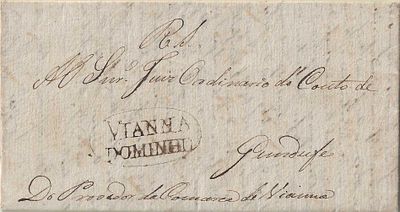 R. S.
Ao Snr. Juiz Ordinario do Couto de
Gondufe
VIANNA
DOMINHO
Do Provedor da Comarca de Vianna